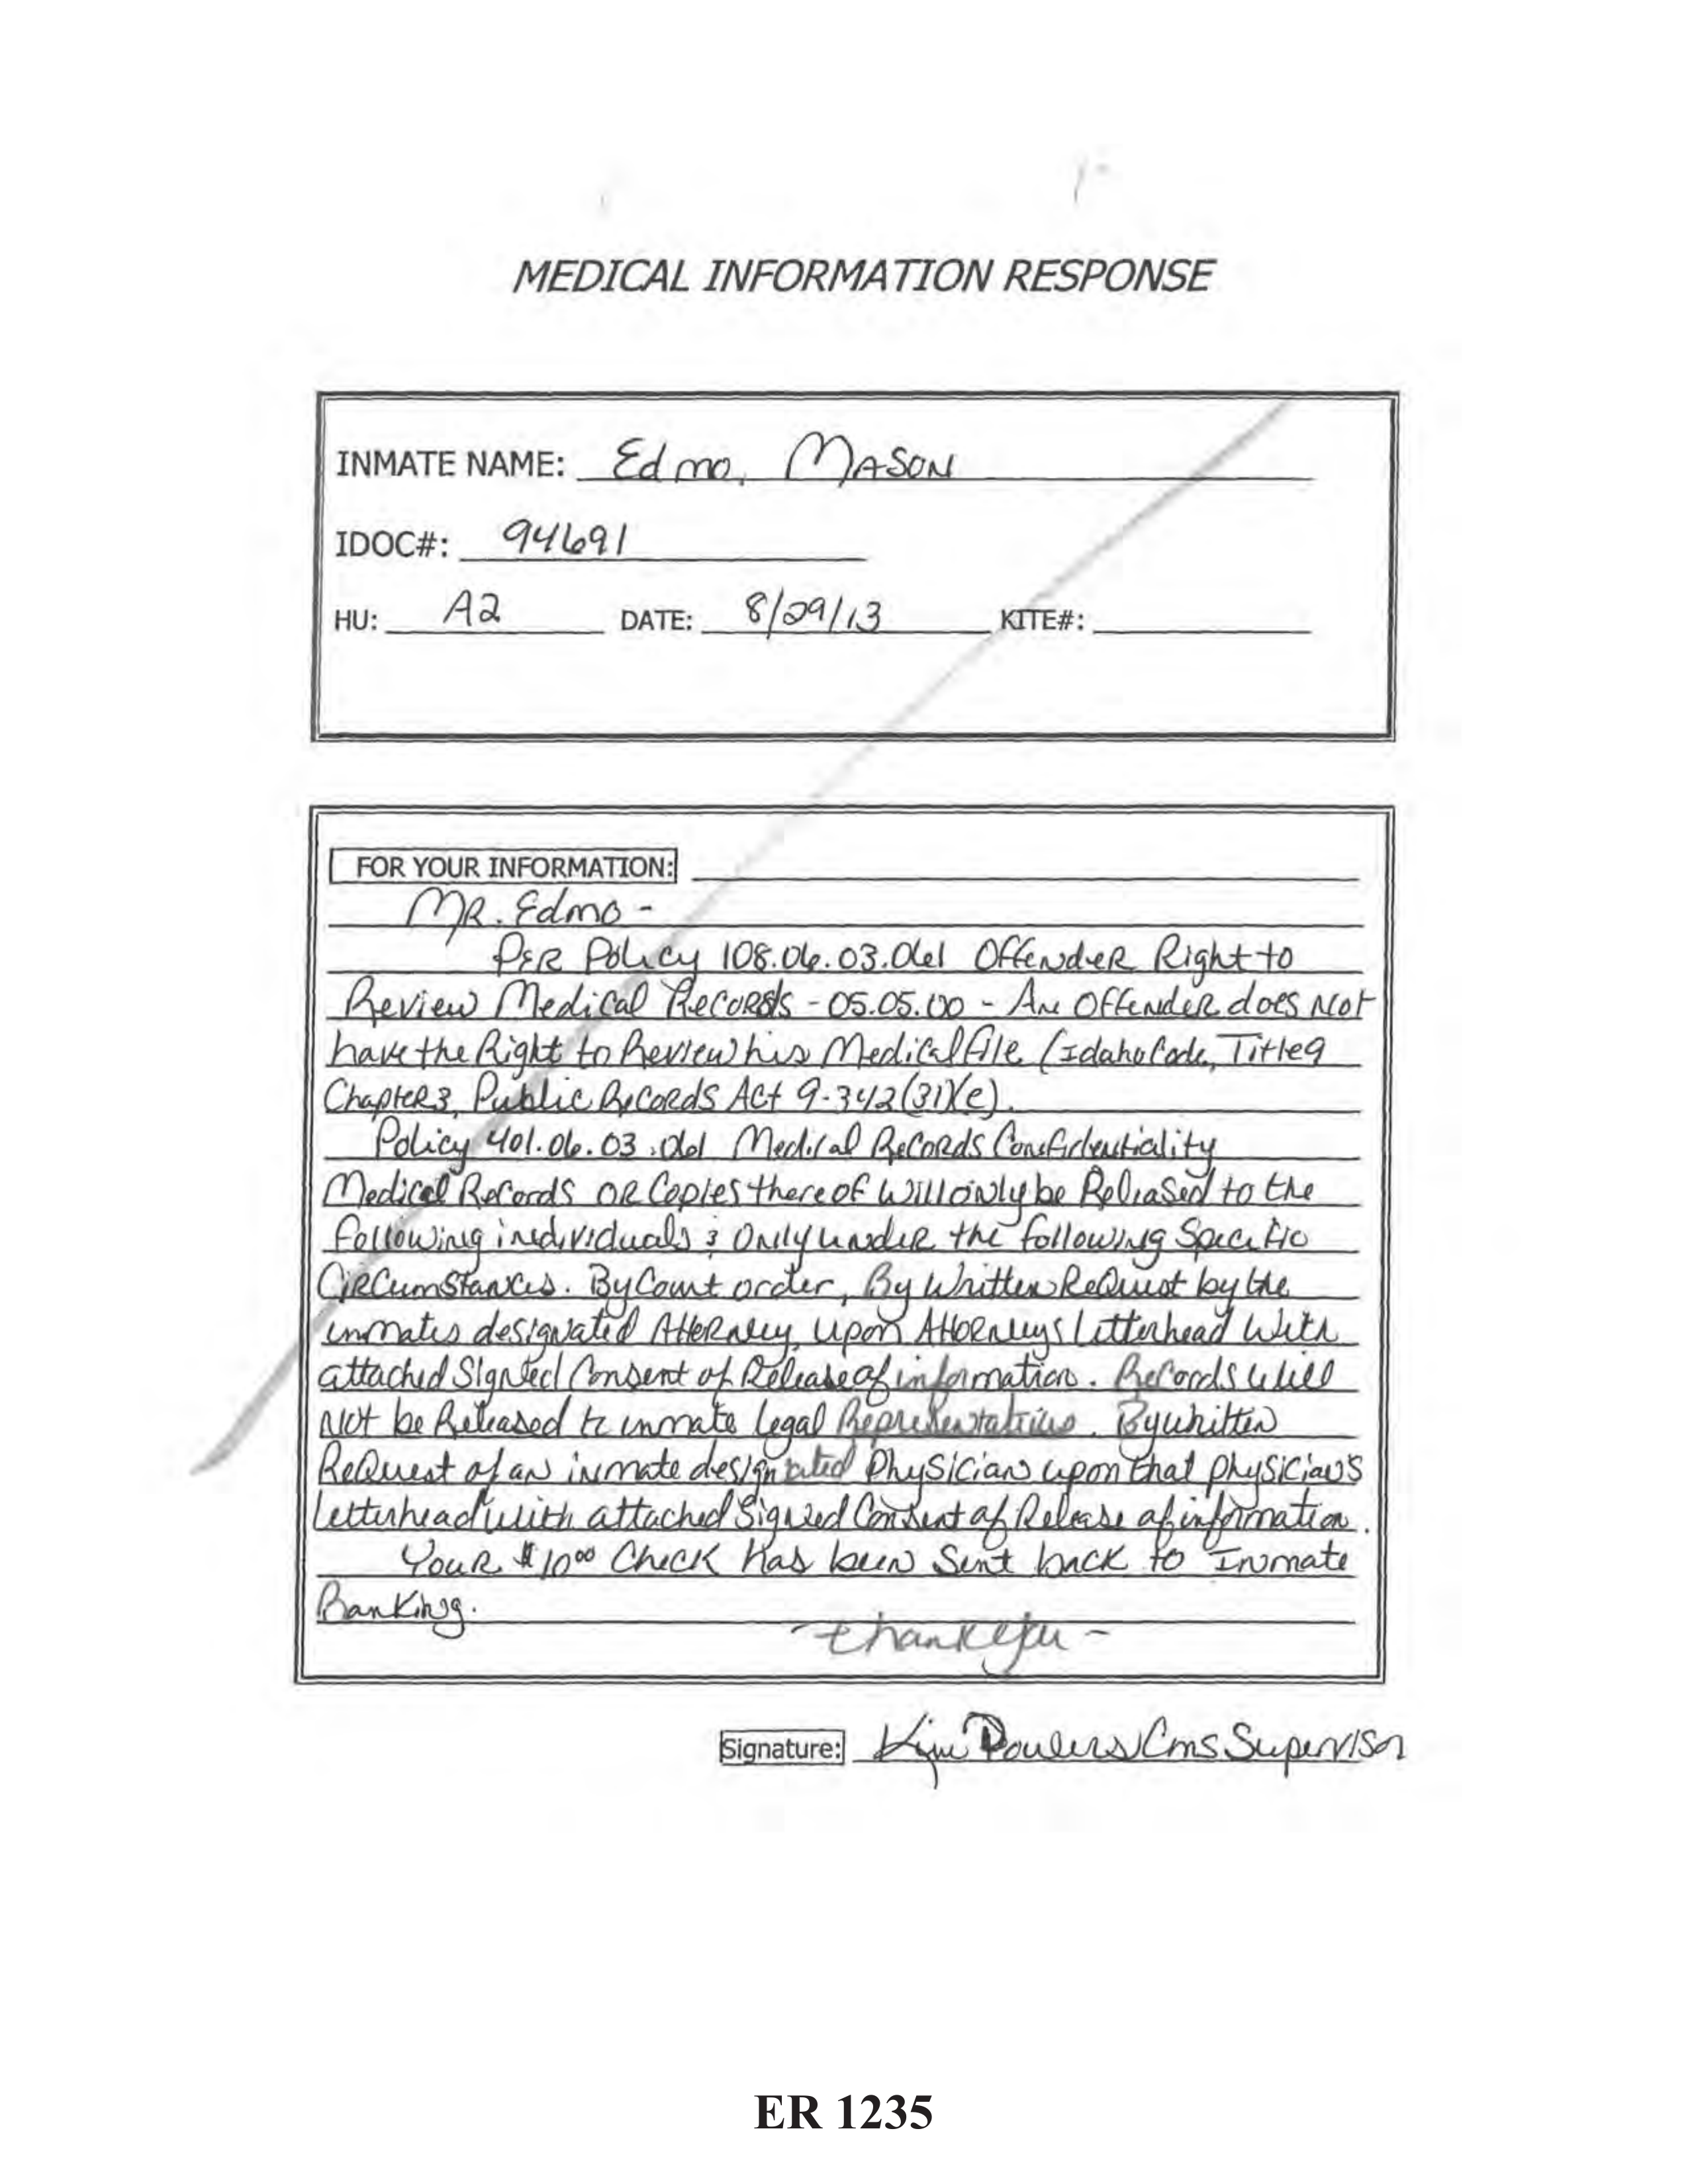 MEDICAL INFORMATION RESPONSE
INMATE NAME: Edmo, MASON
IDOC#: 94691
HU: A2 DATE: 8/29/13 KITE#:
FOR YOUR INFORMATION:
MR. Edmo -
PER Policy 108.06.03.001 OffendeR Right to
Review Medical Records - 05.05.00 - An Offender does Not
have the Right to Review his Medical file (Idaho Code, Title 9
Chapter 3, Public Records Act 9-342(31)(e).
Policy 401.06.03.001 Medical Records Confidentiality
Medical Records OR Copies there of will only be Released to the
following individuals & Only under the following Specific
Circumstances. By Court order, By Written Request by the
inmates designated Attorney, upon Attorneys letterhead With
attached Signed Consent of Release of information. Records will
Not be Released to inmate legal Representatives. By written
Request of an inmate designated Physician upon that physician's
letterhead with attached Signed Consent of Release of information.
Your $10.00 Check has been Sent back to Inmate
Banking.
Thank you -
Signature: Kim CMS Supervisor
ER 1235